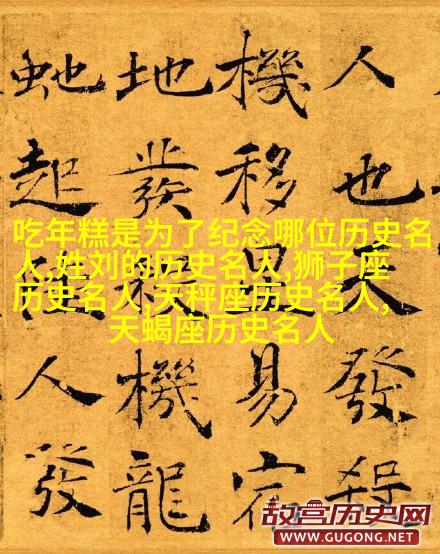 人也發殺
機移易宿
地發機龍
虵起人發
吃年糕是为了纪念哪位历史名
人,姓刘的历史名人,狮子座
历史名人,天秤座历史名人,
天蝎座历史名人
故宫历史网
WWW.GUGONG.NET